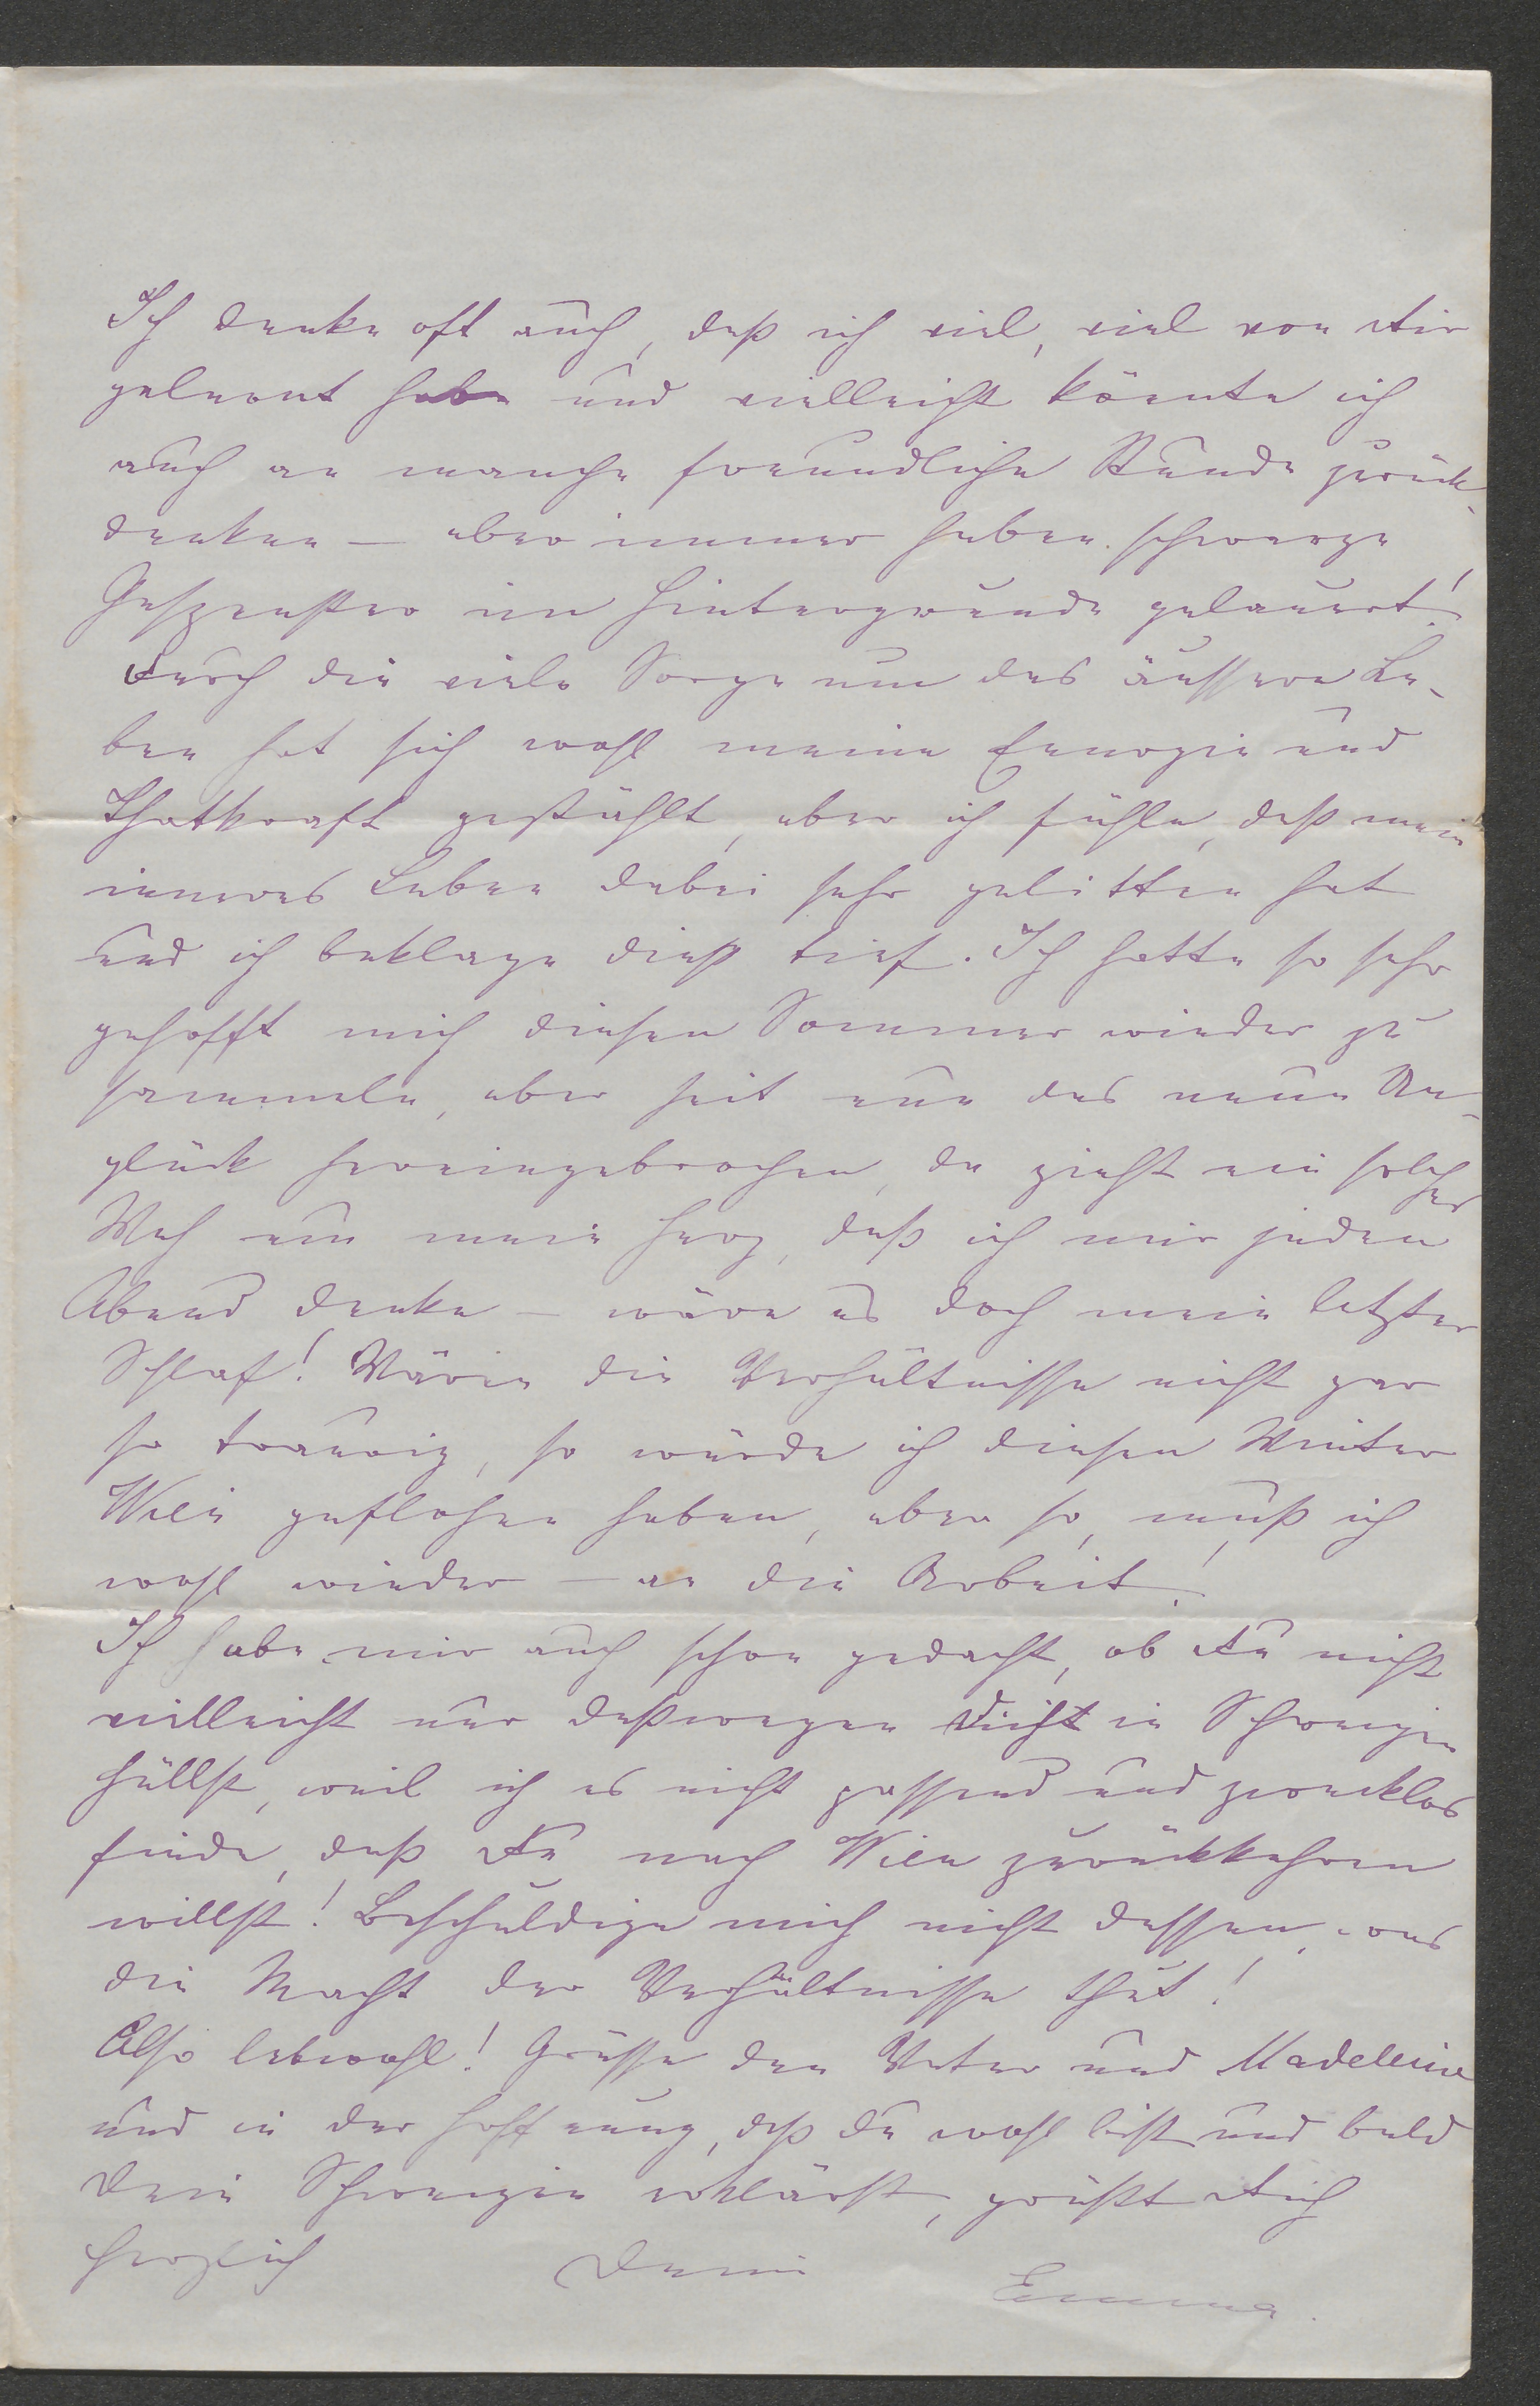 Ich denke oft auch, daß ich viel, viel von Dir
gelernt habe und vielleicht könnte ich
auch an manche freundliche Stunde zurück-
denken – aber immer haben schwarze
Gespenster im Hintergrunde gelauert!
Durch die viele Sorge um das äussere Le-
ben hat sich wohl meine Energie und
Thatkraft gestählt, aber ich fühle, daß mein
inneres Leben dabei sehr gelitten hat
und ich beklage dieß tief. Ich hatte so sehr
gehofft mich diesen Sommer wieder zu
sammeln, aber seit nun das neue Un-
glück hereingebrochen, da zieht ein solches
Weh um mein Herz, daß ich mir jeden
Abend denke – wäre es doch mein letzter
Schlaf! Wären die Verhältnisse nicht gar
so traurig, so würde ich diesen Winter
Wien geflohen haben, aber so, muß ich
wohl wieder – an die Arbeit!
Ich habe mir auch schon gedacht, ob Du nicht
vielleicht nur deßwegen Dich in Schweigen
hüllst, weil ich es nicht passend und zwecklos
finde, daß Du nach Wien zurückkehren
willst! Beschuldige mich nicht dessen, was
die Macht der Verhältnisse thut!
Also lebwohl! Grüsse den Vater und Madeleine
und in der Hoffnung, daß du wohl bist und bald
Dein Schweigen erklärst, grüßt Dich
herzlich Deine Emma.